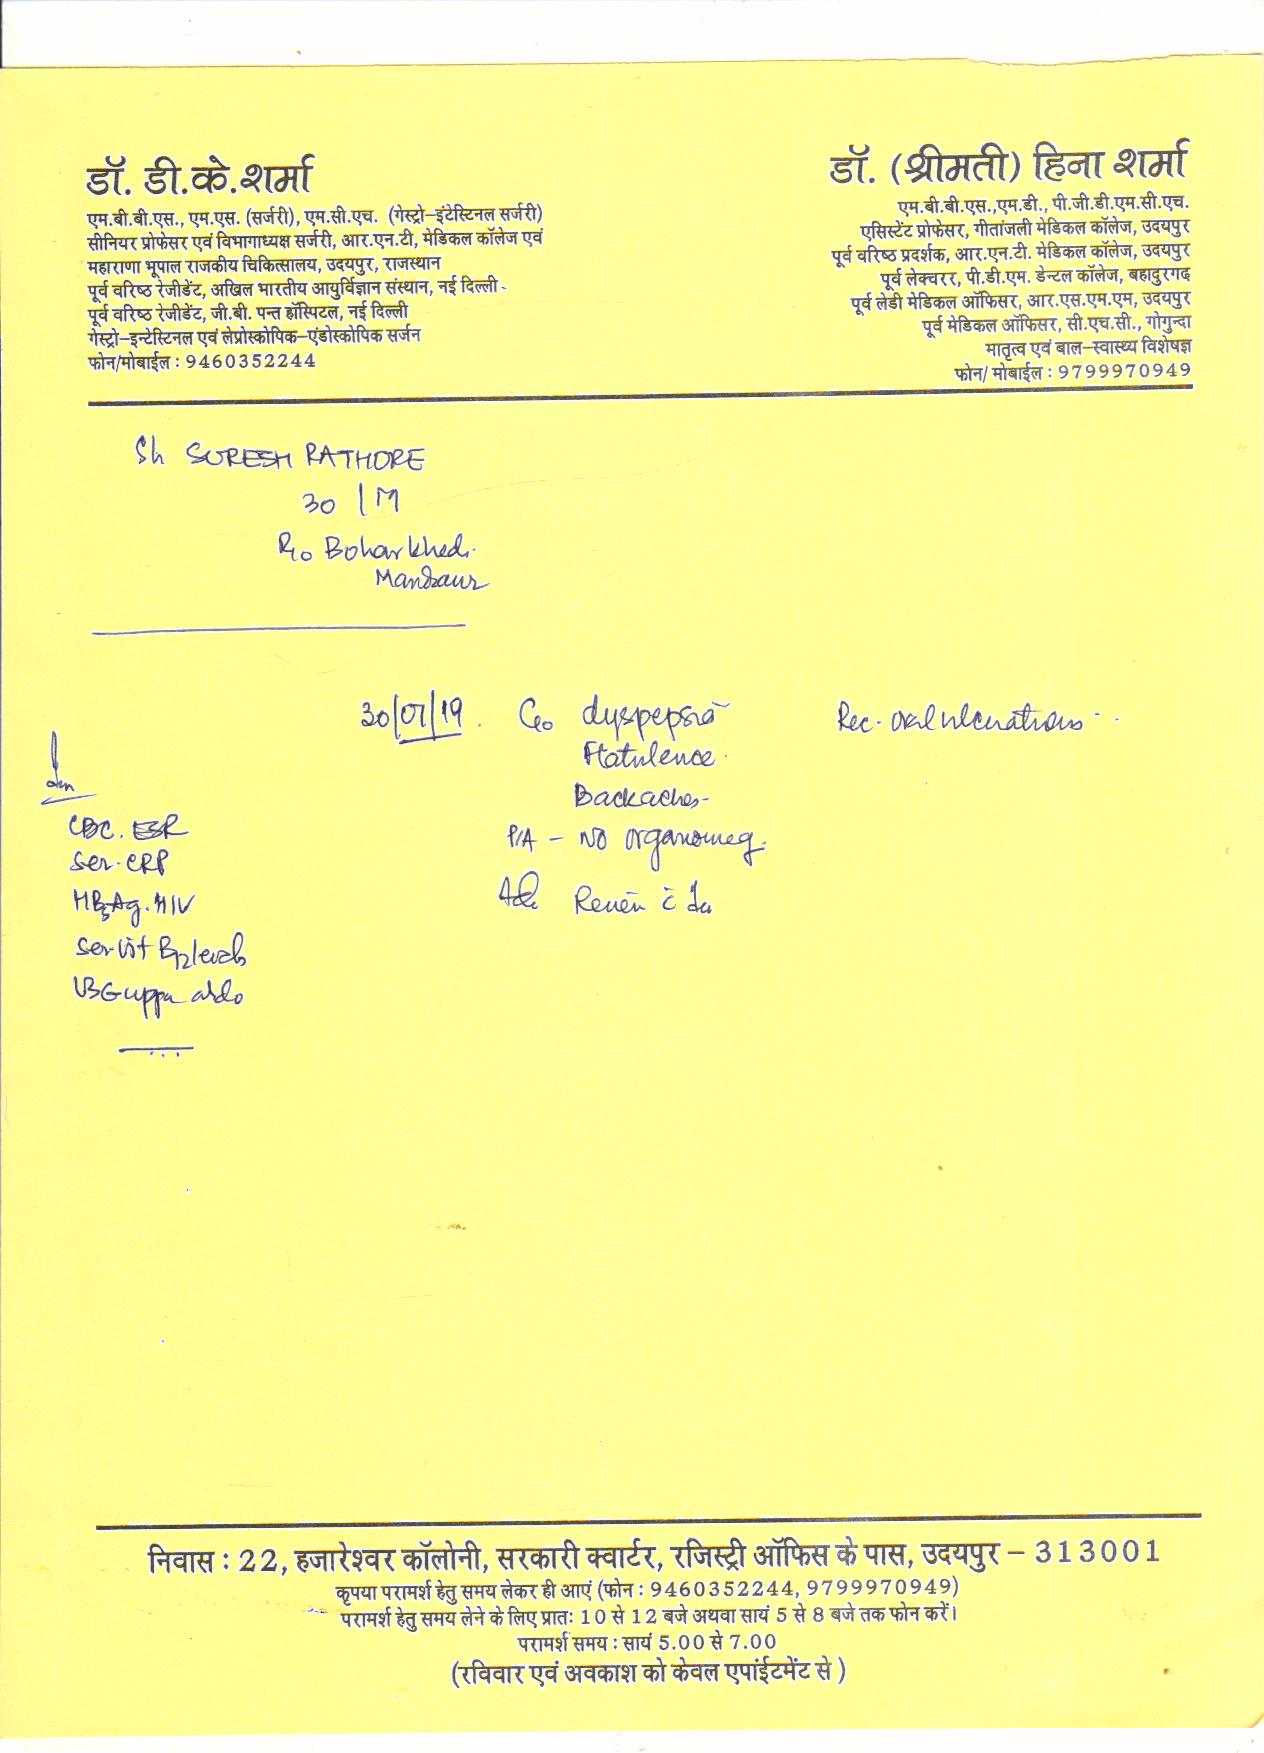 डॉ. डी.के.शर्मा
एम.बी.बी.एस., एम.एस. (सर्जरी), एम.सी.एच. (गेस्ट्रो-इंटेस्टिनल सर्जरी)
सीनियर प्रोफेसर एवं विभागाध्यक्ष सर्जरी, आर.एन.टी, मेडिकल कॉलेज एवं
महाराणा भूपाल राजकीय चिकित्सालय, उदयपुर, राजस्थान
पूर्व वरिष्ठ रेजीडेंट, अखिल भारतीय आयुर्विज्ञान संस्थान, नई दिल्ली
पूर्व वरिष्ठ रेजीडेंट, जी.बी. पन्त हॉस्पिटल, नई दिल्ली
गेस्ट्रो-इन्टेस्टिनल एवं लेप्रोस्कोपिक-एंडोस्कोपिक सर्जन
फोन/मोबाईल : 9460352244
डॉ. (श्रीमती) हिना शर्मा
एम.बी.बी.एस.,एम.डी., पी.जी.डी.एम.सी.एच.
एसिस्टेंट प्रोफेसर, गीतांजली मेडिकल कॉलेज, उदयपुर
पूर्व वरिष्ठ प्रदर्शक, आर.एन.टी. मेडिकल कॉलेज, उदयपुर
पूर्व लेक्चरर, पी.डी.एम. डेन्टल कॉलेज, बहादुरगढ़
पूर्व लेडी मेडिकल ऑफिसर, आर.एस.एम.एम, उदयपुर
पूर्व मेडिकल ऑफिसर, सी.एच.सी., गोगुन्दा
मातृत्व एवं बाल-स्वास्थ्य विशेषज्ञ
फोन/ मोबाईल : 9799970949
Sh SURESH RATHORE
30 / M
R/o Boharkhedi
Mandsaur
30/07/19. C/o dyspepsia Rec. oral ulcerations
Flatulence
Backaches
P/A - NO organomeg.
Adv Review c̄
CBC. ESR
Ser. CRP
HBsAg. HIV
Ser Vit B12 levels
USG uppr abdo
निवास : 22, हजारेश्वर कॉलोनी, सरकारी क्वार्टर, रजिस्ट्री ऑफिस के पास, उदयपुर – 313001
कृपया परामर्श हेतु समय लेकर ही आएं (फोन : 9460352244, 9799970949)
परामर्श हेतु समय लेने के लिए प्रातः 10 से 12 बजे अथवा सायं 5 से 8 बजे तक फोन करें।
परामर्श समय : सायं 5.00 से 7.00
(रविवार एवं अवकाश को केवल एपांईटमेंट से )